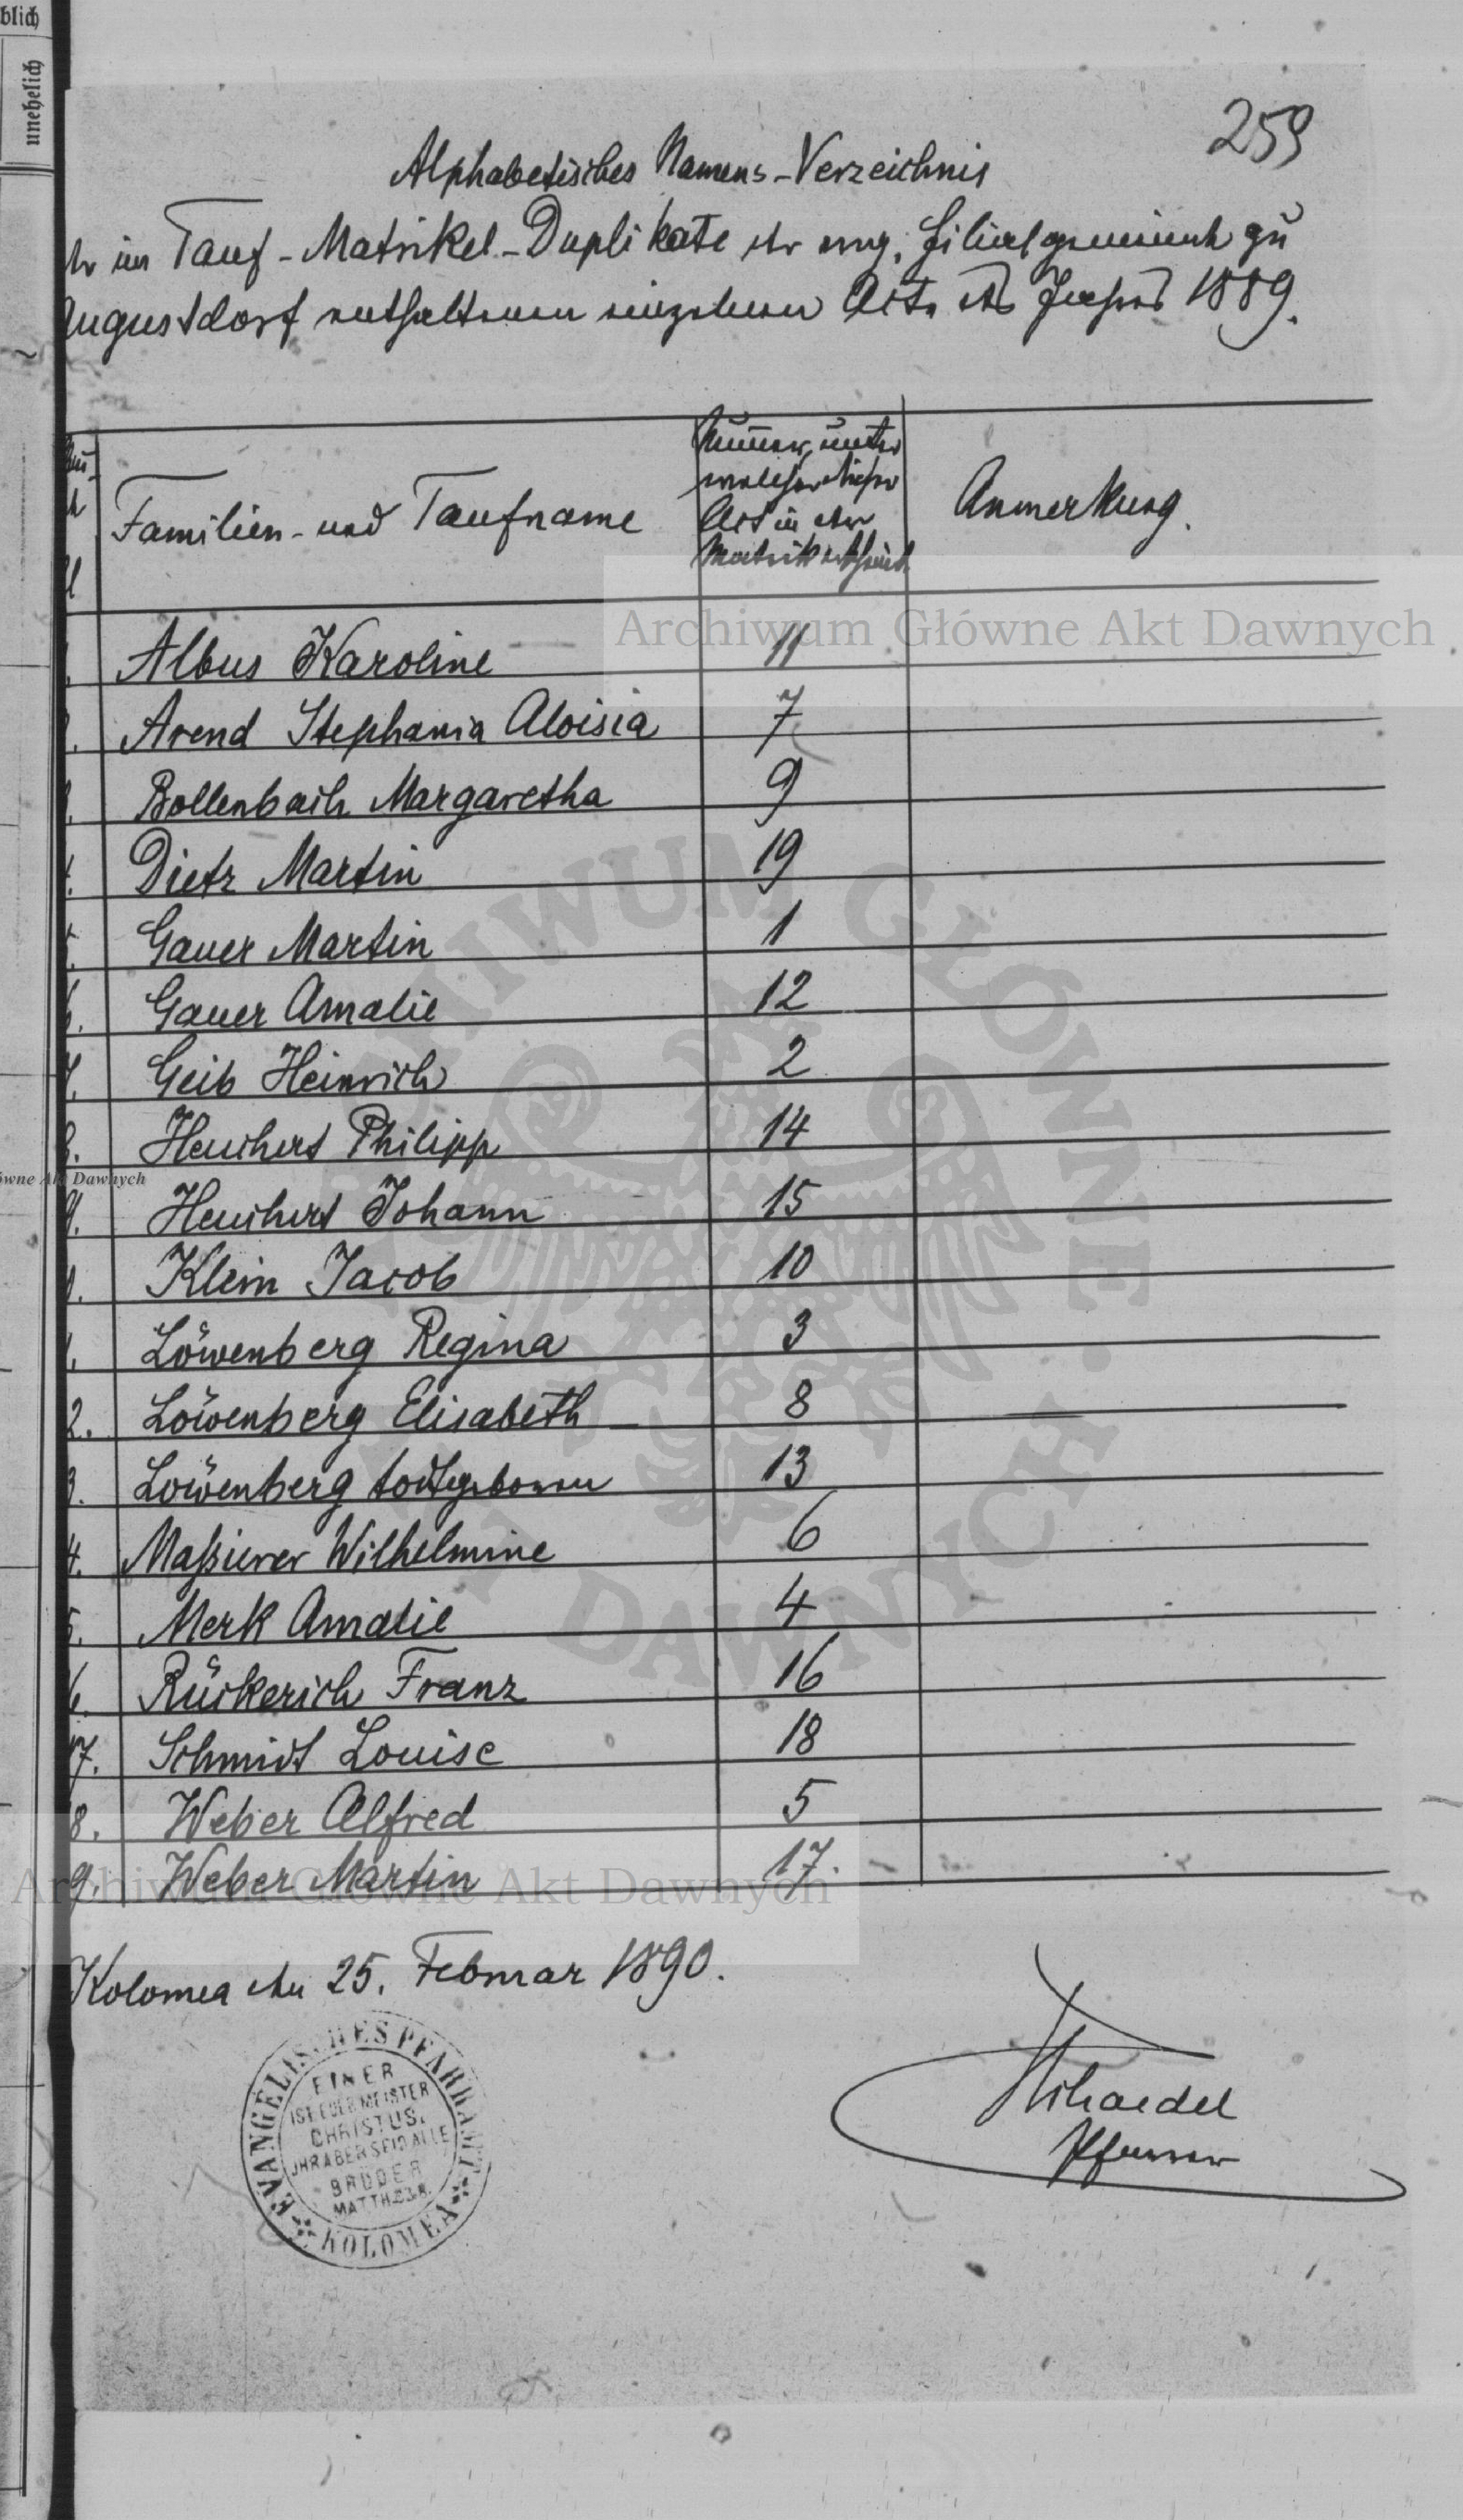 blich
unehelich
259
Alphabetisches Namens-Verzeichnis
der im Tauf-Matrikel-Duplikate der evng. Filialgemeinde zu
Augustdorf enthaltenen einzelnen Acte des Jahres 1889.
Familien- und Taufname
Nummer, unter
welcher dieser
Act in der
Matrik erscheint
Anmerkung.
Albus Karoline 11
2. Arend Stephania Aloisia 7
3. Bollenbach Margaretha 9
4. Dietz Martin 19
5. Gauer Martin 1
6. Gauer Amalie 12
7. Geib Heinrich 2
8. Heuchert Philipp 14
9. Heuchert Johann 15
0. Klein Jacob 10
1. Löwenberg Regina 3
2. Löwenberg Elisabeth 8
3. Löwenberg todtgeboren 13
4. Maßierer Wilhelmine 6
5. Merk Amalie 4
6. Rückerich Franz 16
17. Schmidt Louise 18
8. Weber Alfred 5
9. Weber Martin 17.
Kolomea den 25. Februar 1890.
Pfarrer
EVANGELISCHES PFARRAMT
KOLOMEA
EINER
IST EUER MEISTER
CHRISTUS,
IHR ABER SEID ALLE
BRÜDER
MATTH. 23.8.
Archiwum Główne Akt Dawnych
ówne Akt Dawnych
ARCHIWUM GŁÓWNE AKT DAWNYCH
Archiwum Główne Akt Dawnych